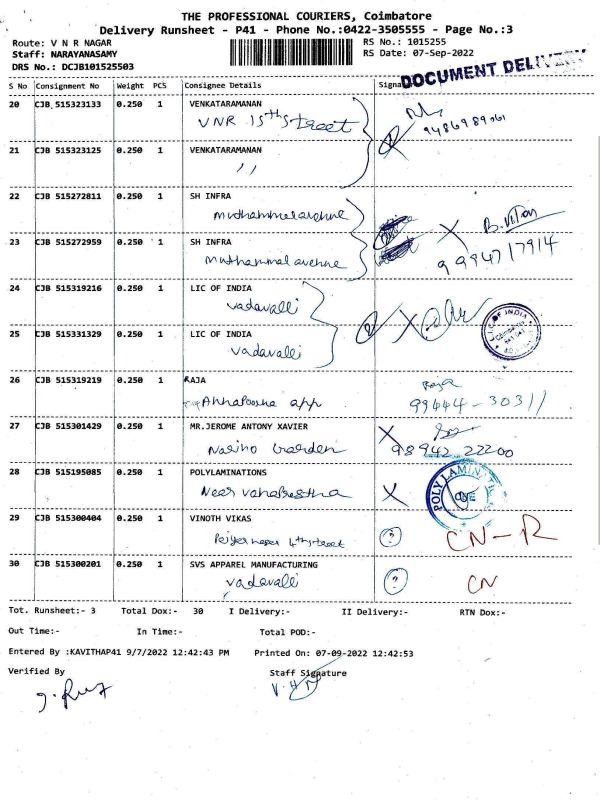 THE PROFESSIONAL COURIERS, Coimbatore
Delivery Runsheet - P41 - Phone No.:0422-3505555 - Page No.:3
Route: V N R NAGAR
RS No.: 1015255
Staff: NARAYANASAMY
RS Date: 07-Sep-2022
DRS No.: DCJB101525503
DOCUMENT DELIVERY
S No Consignment No Weight PCS Consignee Details
20 CJB 515323133 0.250 1 VENKATARAMANAN
VNR 15th street
9486989061
21 CJB 515323125 0.250 1 VENKATARAMANAN
,,
22 CJB 515272811 0.250 1 SH INFRA
23 CJB 515272959 0.250 1 SH INFRA
9994717914
24 CJB 515319216 0.250 1 LIC OF INDIA
vadavalli
LIC OF INDIA
25 CJB 515331329 0.250 1 LIC OF INDIA
vadavalli
26 CJB 515319219 0.250 1 RAJA
Raja
app 99444-30311
27 CJB 515301429 0.250 1 MR.JEROME ANTONY XAVIER
Garden 98942 22200
28 CJB 515195085 0.250 1 POLYLAMINATIONS
Near
POLY LAMIN
29 CJB 515300404 0.250 1 VINOTH VIKAS
4th street ? CN-R
30 CJB 515300201 0.250 1 SVS APPAREL MANUFACTURING
vadavalli ? CN
Tot. Runsheet:- 3 Total Dox:- 30 I Delivery:- II Delivery:- RTN Dox:-
Out Time:- In Time:- Total POD:-
Entered By :KAVITHAP41 9/7/2022 12:42:43 PM Printed On: 07-09-2022 12:42:53
Verified By Staff Signature